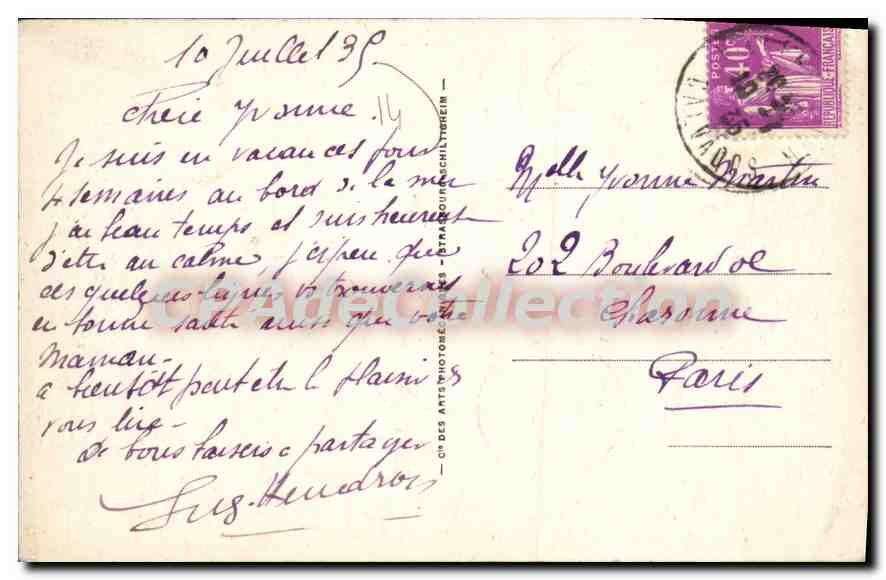 10 Juillet 35
14
Chère Yvonne
Je suis en vacances pour
4 semaines au bord de la mer
j'ai beau temps et suis heureuse
d'être au calme, j'espère que
ces quelques lignes vs trouverons
en bonne santé ainsi que votre
maman-
a bientôt peut être le plaisir de
vous lire-
De bons baisers a partager
Hendrois
Cie DES ARTS PHOTOMÉCANIQUES - STRASBOURG-SCHILTIGHEIM -
POSTES
40c
REPUBLIQUE-FRANÇAISE
CALVADOS
Melle Yvonne Martin
202 Boulevard de
Charonne
Paris
CPADeCollection